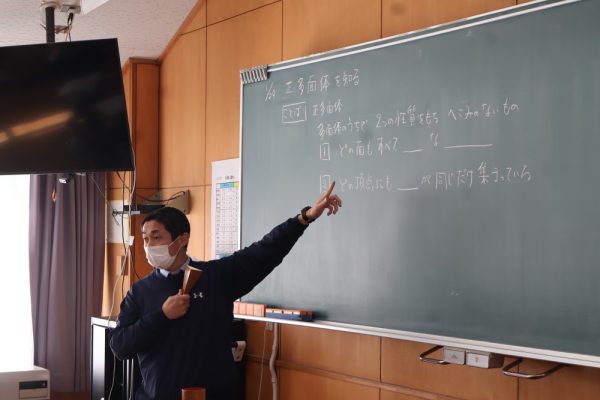 1/24 正多面体を知る
ことば 正多面体
多面体のうちで 2つの性質をもち へこみのないもの
1 どの面もすべて ___ な ______
2 どの頂点にも ___ が 同じだけ 集まっている